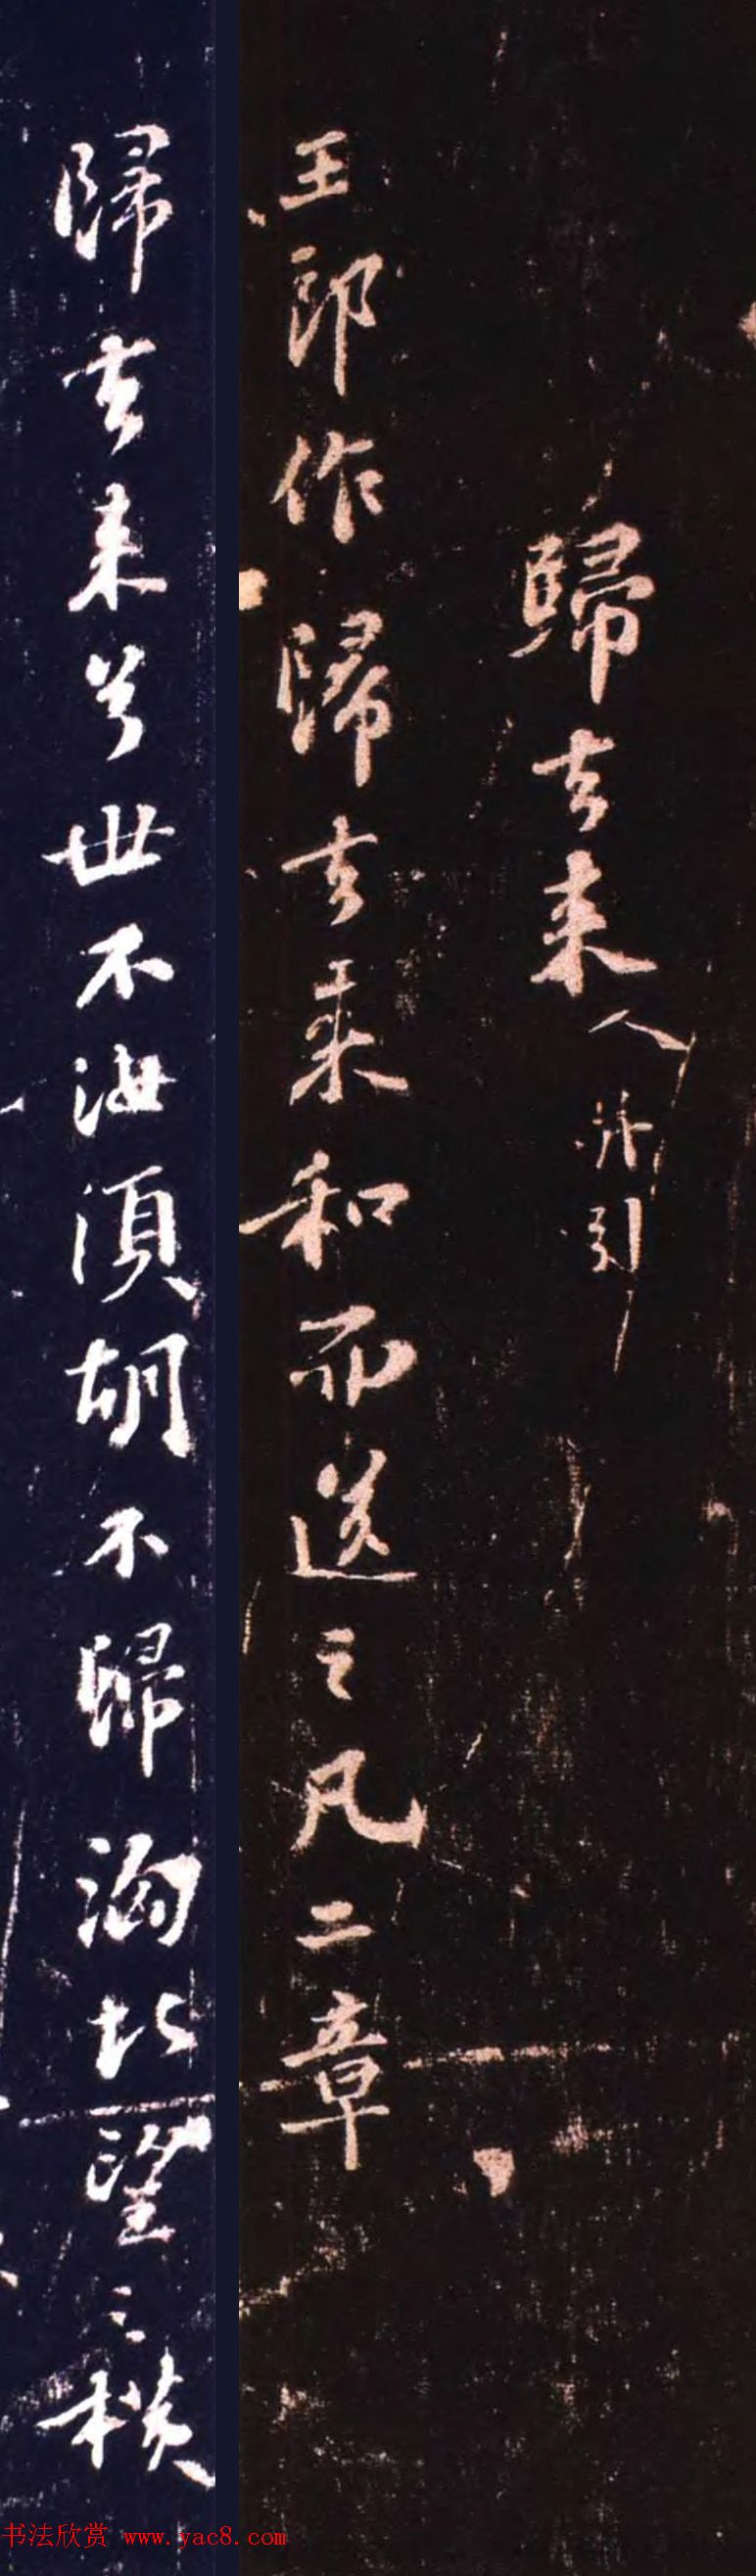 歸去來并引
王郎作歸去來和而送之凡二章
歸去來兮世不汝須胡不歸洶北望之横
书法欣赏 www.yac8.com